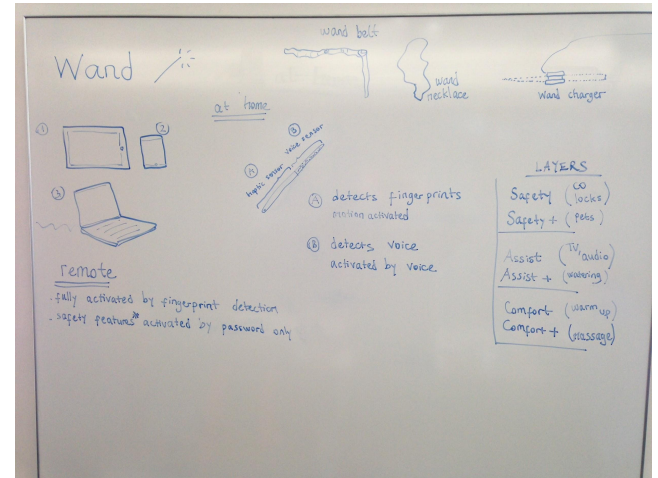 wand belt
Wand
wand
necklace
wand charger
at home
1
2
3
A
haptic sensor
B
voice sensor
A detects fingerprints
motion activated
B detects voice
activated by voice
remote
- fully activated by fingerprint detection
- safety features* activated by password only
LAYERS
Safety (CO
locks)
Safety + (pets)
Assist (TV, audio)
Assist + (watering)
Comfort (warm up)
Comfort + (massage)